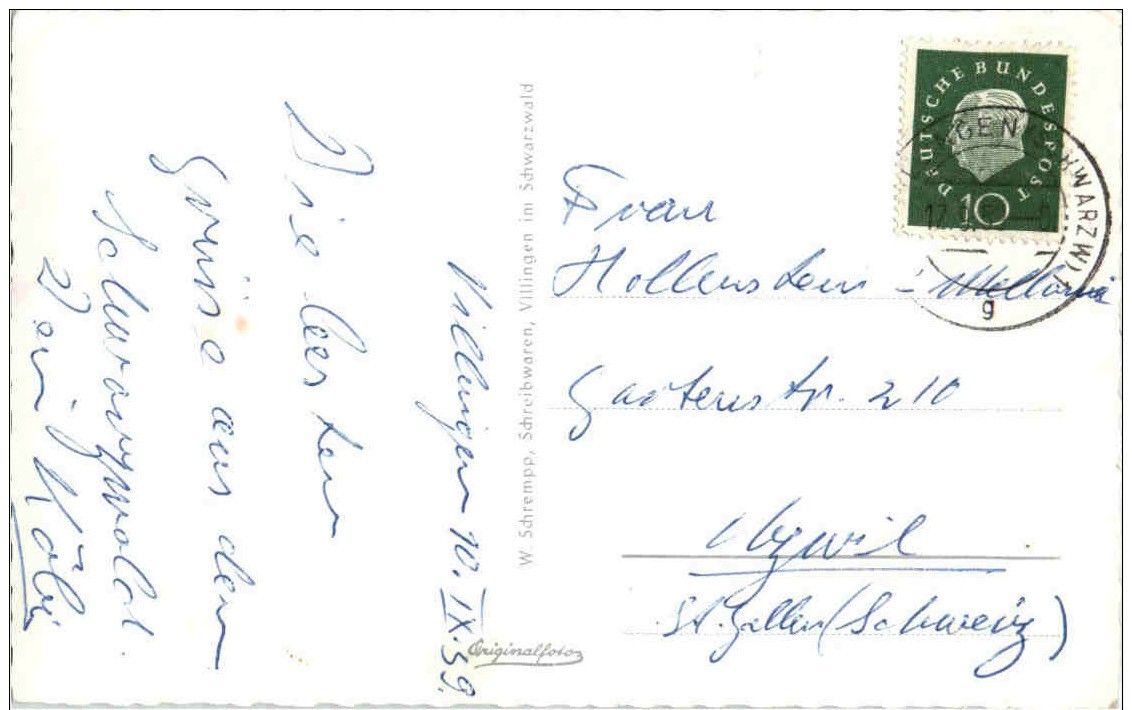 Villingen 10. IX. 59.
Die besten
Grüsse aus dem
Schwarzwald.
Dein Köbi
W. Schrempp, Schreibwaren, Villingen im Schwarzwald
Originalfoto
DEUTSCHE BUNDESPOST
10
GEN
HWARZW
17.9.
g
Frau
Hollenstein - Mellania
Gartenstr. 210
Uzwil
St. Gallen (Schweiz)